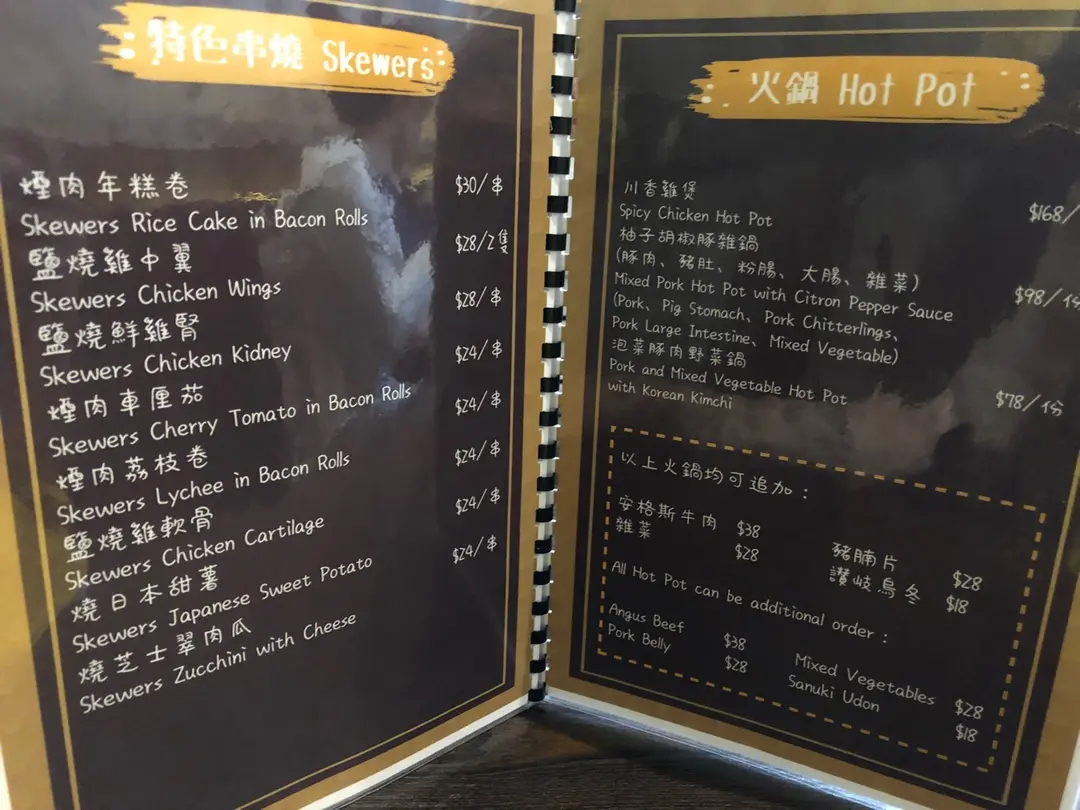 特色串燒 Skewers
煙肉年糕卷 $30/串
Skewers Rice Cake in Bacon Rolls
鹽燒雞中翼 $28/2隻
Skewers Chicken Wings
鹽燒鮮雞腎 $28/串
Skewers Chicken Kidney
煙肉車厘茄 $24/串
Skewers Cherry Tomato in Bacon Rolls
煙肉荔枝卷 $24/串
Skewers Lychee in Bacon Rolls
鹽燒雞軟骨 $24/串
Skewers Chicken Cartilage
燒日本甜薯 $24/串
Skewers Japanese Sweet Potato
燒芝士翠肉瓜 $24/串
Skewers Zucchini with Cheese
火鍋 Hot Pot
川香雞煲 $168/
Spicy Chicken Hot Pot
柚子胡椒豚雜鍋
(豚肉、豬肚、粉腸、大腸、雜菜)
Mixed Pork Hot Pot with Citron Pepper Sauce $98/份
(Pork、Pig Stomach、Pork Chitterlings、
Pork Large Intestine、Mixed Vegetable)
泡菜豚肉野菜鍋
Pork and Mixed Vegetable Hot Pot $78/份
with Korean Kimchi
以上火鍋均可追加：
安格斯牛肉 $38 豬腩片 $28
雜菜 $28 讚岐烏冬 $18
All Hot Pot can be additional order :
Angus Beef $38 Mixed Vegetables $28
Pork Belly $28 Sanuki Udon $18